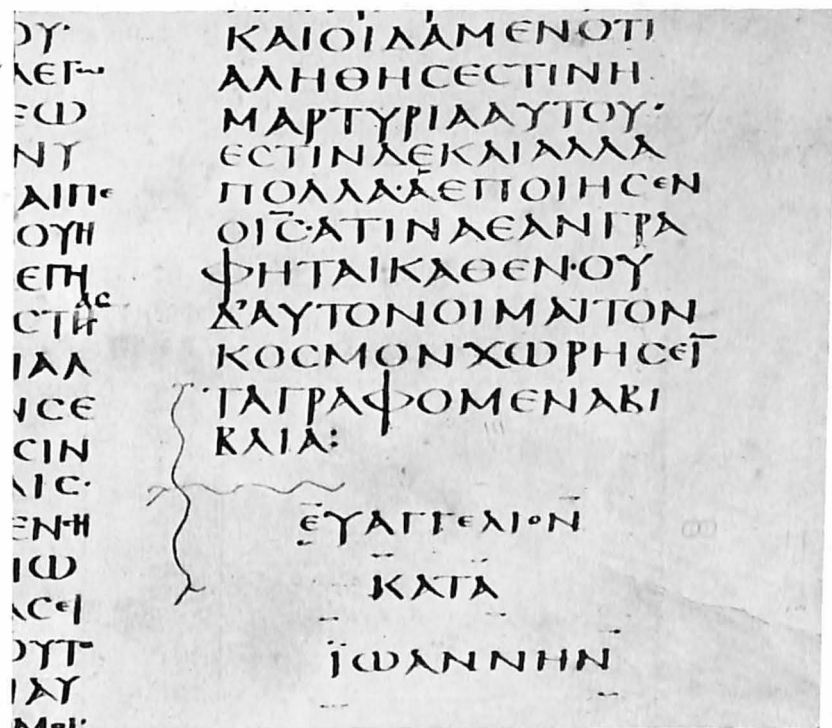 ΟΥ·
ΛΕΓω
ΕΩ
ΝΥ
ΑΙΠΕ
ΟΥΗ
ΕΠΗ
ΑC
CΤΗ
ΙΑΛ
ΝCΕ
CΙΝ
ΛΙC·
ΕΝ·Η
ΙΩ
ΑCΕΙ
ΟΥΤ
ΙΑΥ
ΜΕΙ·
ΚΑΙΟΙΔΑΜΕΝΟΤΙ
ΑΛΗΘΗCΕCΤΙΝΗ
ΜΑΡΤΥΡΙΑΑΥΤΟΥ·
ΕCΤΙΝΔΕΚΑΙΑΛΛΑ
ΠΟΛΛΑ·ΑΕΠΟΙΗCΕΝ
ΟΙ̅C̅·ΑΤΙΝΑΕΑΝΓΡΑ
ΦΗΤΑΙΚΑΘΕΝ·ΟΥ
Δ’ΑΥΤΟΝΟΙΜΑΙΤΟΝ
ΚΟCΜΟΝΧΩΡΗCΕΙ̅
ΤΑΓΡΑΦΟΜΕΝΑΒΙ
ΒΛΙΑ:
ΕΥΑΓΓΕΛΙΟΝ
ΚΑΤΑ
ΪΩΑΝΝΗΝ